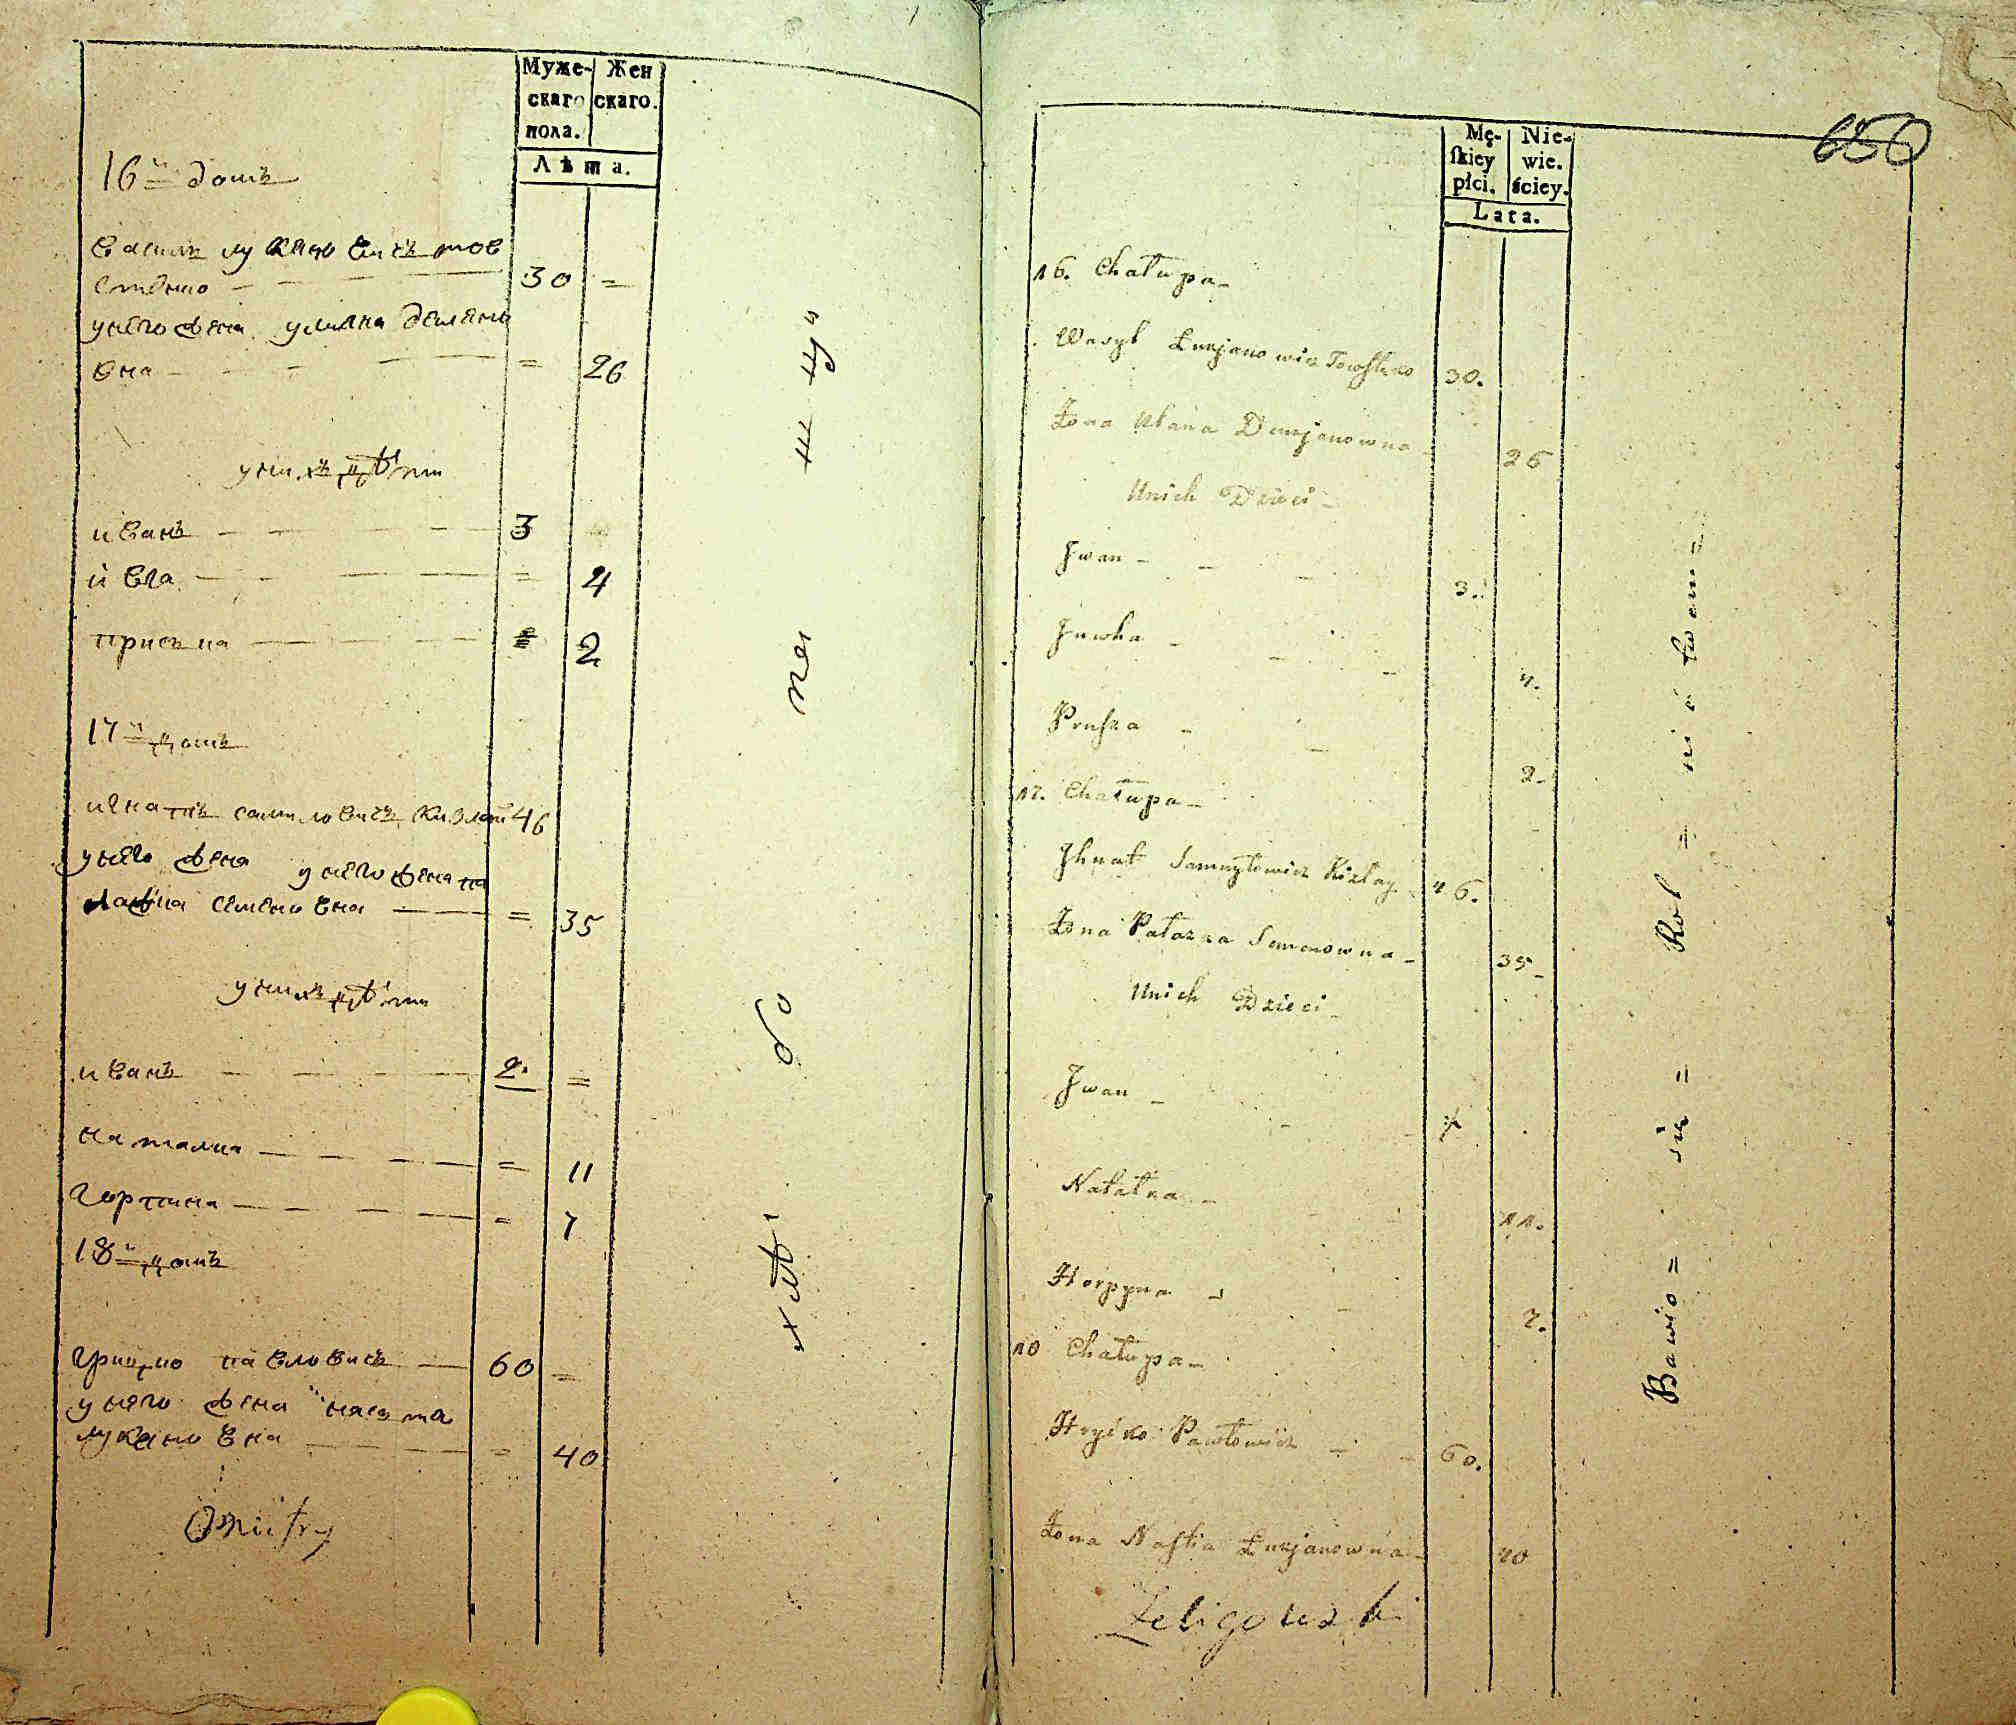 Муже-
скаго
пола.
Жен
скаго.
Лѣта.
16й домъ
василь лукяновичъ тов
стенко 30 =
унего жена улияна демяно
вна = 26
унихъ дѣти
иванъ 3
ивга = 4
приська = 2
17й домъ
игнатъ самиловичъ кизлай 46
унего жена унего жена па
лажка семеновна = 35
унихъ дѣти
иванъ 2. =
наталка = 11
горпина = 7
18й домъ
грицко павловичъ 60 =
унего жена настя
лукяновна = 40
Dmitry
хлѣбо
650
Mę-
skiey
płci.
Nie-
wie.
ściey.
Lata.
16. Chałupa
Wasyl Łukjanowicz Towstęko 30.
Żona Ulana Demjanowna 26
Unich Dzieci
Jwan 3.
Juwha 4.
Pruska 2
17. Chałupa
Jhnat Samuyłowicz Kizlay 46.
Żona Pałazka Semenowna 35
Unich Dzieci
Jwan
Natałka 11.
Horpyna 7.
18 Chałupa
Hryćko Pawłowicz 60.
Żona Nastia Łukjanowna 40
Żeligowski
Bawio = sie = Rol = nićtwem =